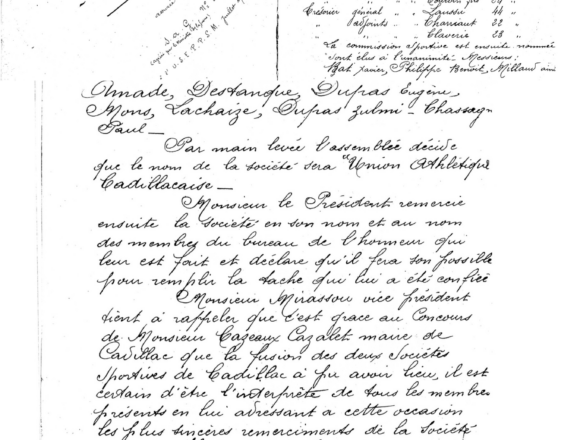 Trésorier général " " Laussu 44
" adjoints " " Charriaut 22
" " " Claverie 23
La commission sportive est ensuite nommée
Sont élus à l'unanimité Messieurs:
Bat Xavier, Philippe Benoit, Millaud
Amade, Destanque, Dupras Eugène,
Mons, Lachaize, Dupras Zulmi - Chassagn
Paul -
Par main levée l'assemblée décide
que le nom de la société sera "Union Athlétique
Cadillacaise -
Monsieur le Président remercie
ensuite la société en son nom et au nom
des membres du bureau de l'honneur qui
leur est fait et déclare qu'il fera son possible
pour remplir la tache qui lui a été confiée
Monsieur Mirassou vice président
tient à rappeler que c'est grace au Concours
de Monsieur Cazeaux Cazalet maire de
Cadillac que la fusion des deux Sociétés
Sportives de Cadillac à pu avoir lieu, il est
certain d'être l'interprète de tous les membres
présents en lui adressant a cette occasion
les plus sincères remerciments de la Société